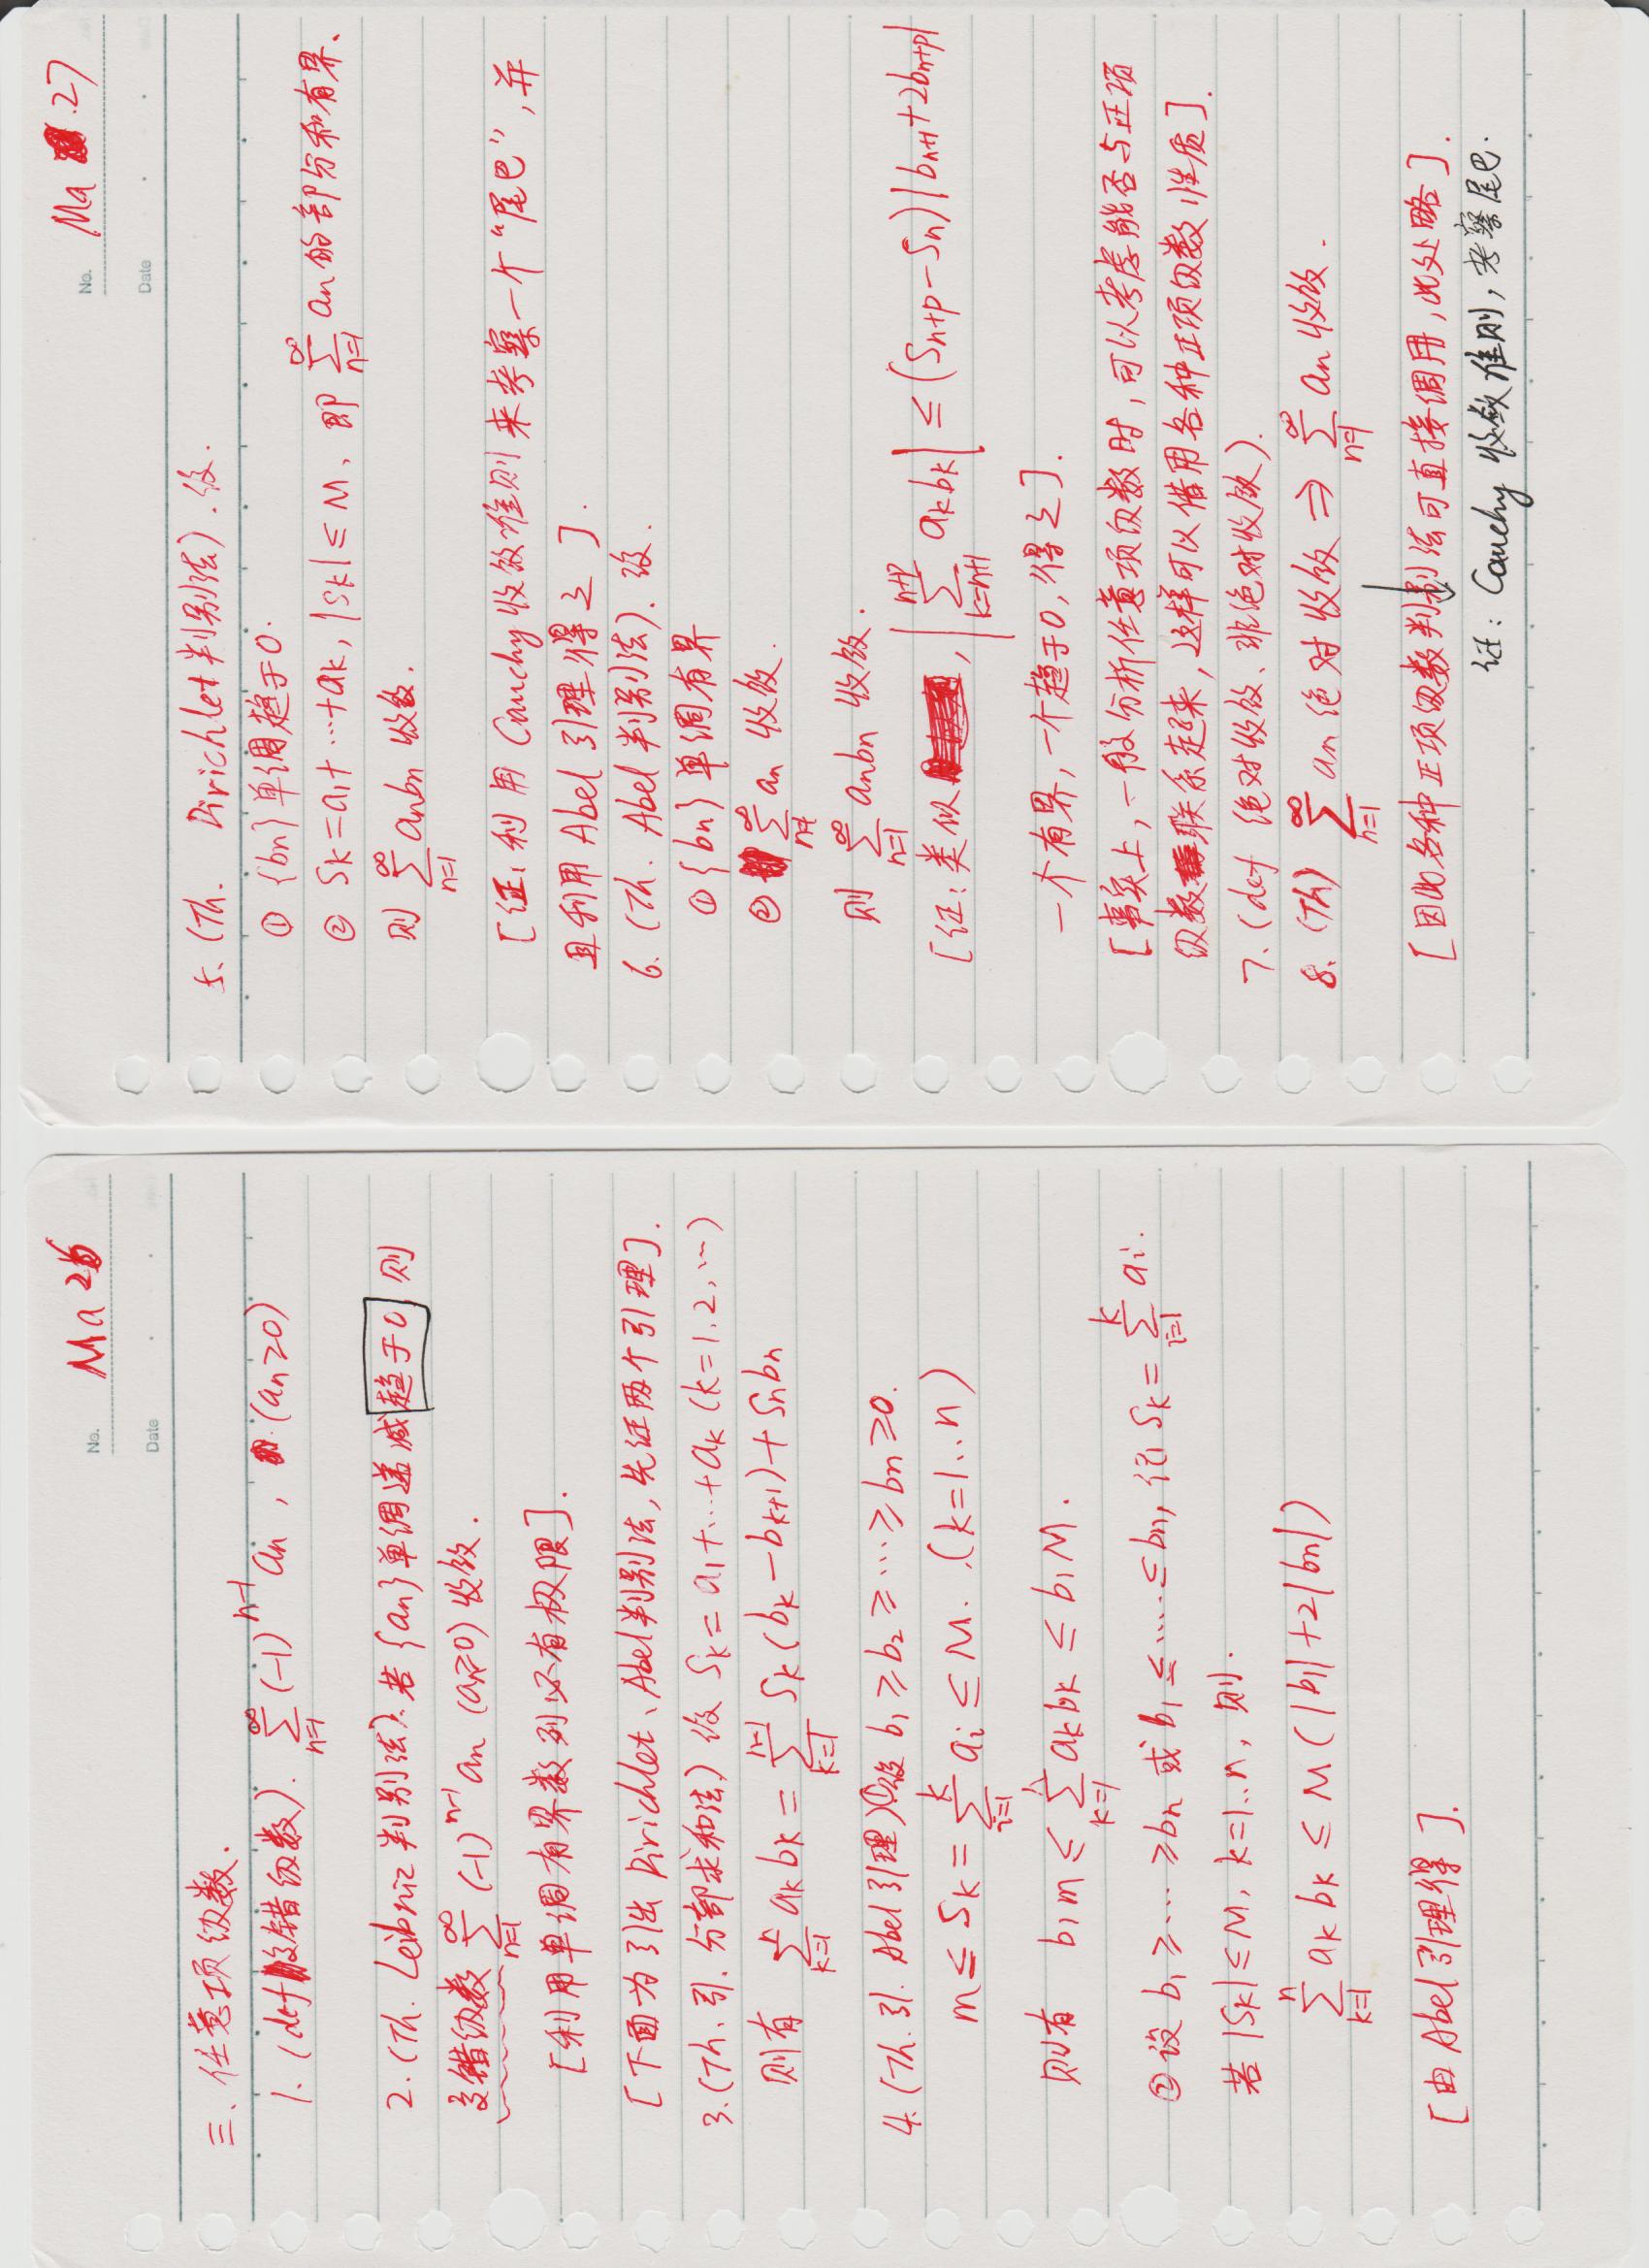 No. Ma 26
Date
三、任意项级数.
1. (def 交错级数). ∑_{n=1}^{∞} (-1)^{n-1} an , (an≥0)
2. (Th. Leibniz 判别法). 若{an}单调递减趋于0, 则
交错级数 ∑_{n=1}^{∞} (-1)^{n-1} an (an≥0) 收敛.
[利用单调有界数列必有极限].
[下面为引出 Dirichlet、Abel判别法, 先证两个引理].
3. (Th. 引. 分部求和法) 设 Sk = a1+…+ak (k=1.2,…)
则有 ∑_{k=1}^{n} akbk = ∑_{k=1}^{n-1} Sk(bk-bk+1)+Snbn
4. (Th. 引. Abel引理) ①设 b1≥b2≥…≥bn≥0.
m≤Sk=∑_{i=1}^{k} ai≤M. (k=1..n)
则有 b1m≤∑_{k=1}^{n} akbk≤b1M.
②设 b1≥…≥bn 或 b1≤…≤bn, 记 Sk=∑_{i=1}^{k} ai.
若 |Sk|≤M, k=1..n, 则.
∑_{k=1}^{n} akbk≤M(|b1|+2|bn|)
[由Abel引理得].
No. Ma .27
Date
5. (Th. Dirichlet判别法). 设.
① {bn}单调趋于0.
② Sk=a1+…+ak, |Sk|≤M, 即 ∑_{n=1}^{∞} an的部分和有界.
则 ∑_{n=1}^{∞} anbn 收敛.
[证: 利用 Cauchy收敛准则来考察一个“尾巴”, 并
且利用Abel引理得之].
6. (Th. Abel判别法). 设.
①{bn}单调有界
② ∑_{n=1}^{∞} an 收敛.
则 ∑_{n=1}^{∞} anbn 收敛.
[证: 类似, |∑_{k=n+1}^{n+p} akbk|≤(Sn+p-Sn)|bn+1+2bn+p|
一个有界, 一个趋于0, 得之].
[事实上, 一般分析任意项级数时, 可以考虑能否与正项
级数联系起来, 这样可以借用各种正项级数性质].
7. (def 绝对收敛、非绝对收敛).
8. (Th) ∑_{n=1}^{∞} an绝对收敛 ⇒ ∑_{n=1}^{∞} an收敛.
[因此各种正项级数判别法可直接调用, 此处略].
证: Cauchy 收敛准则, 考察尾巴.